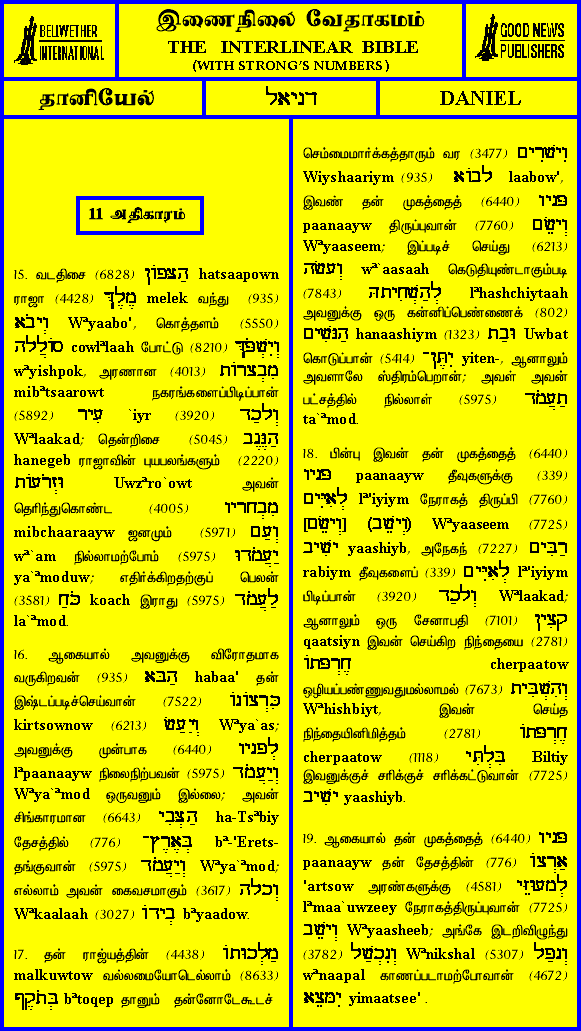 BELLWETHER
INTERNATIONAL
இணைநிலை வேதாகமம்
THE INTERLINEAR BIBLE
(WITH STRONG'S NUMBERS)
GOOD NEWS
PUBLISHERS
தானியேல்
דניאל
DANIEL
11 அதிகாரம்
15. வடதிசை (6828) הַצָּפוֹן hatsaapown
ராஜா (4428) מֶלֶךְ melek வந்து (935)
וְיָבֹא Wᵃyaabo', கொத்தளம் (5550)
סוֹלֲלָה cowlᵃlaah போட்டு (8210) וְיִשְׁפֹּךְ
wᵃyishpok, அரணான (4013) מִבְצָרוֹת
mibᵃtsaarowt நகரங்களைப்பிடிப்பான்
(5892) עִיר `iyr (3920) וְלָכַד
Wᵃlaakad; தென்றிசை (5045) הַנֶּגֶב
hanegeb ராஜாவின் புயபலங்களும் (2220)
וּזְרֹעוֹת Uwzᵃro`owt அவன்
தெரிந்துகொண்ட (4005) מִבְחָרָיו
mibchaaraayw ஜனமும் (5971) וְעַם
wᵃ`am நில்லாமற்போம் (5975) יַעֲמֹדוּ
ya`ᵃmoduw; எதிர்க்கிறதற்குப் பெலன்
(3581) כֹּחַ koach இராது (5975) לַעֲמֹד
la`ᵃmod.
16. ஆகையால் அவனுக்கு விரோதமாக
வருகிறவன் (935) הַבָּא habaa' தன்
இஷ்டப்படிச்செய்வான் (7522) כִּרְצוֹנוֹ
kirtsownow (6213) וְיַעַשׂ Wᵃya`as;
அவனுக்கு முன்பாக (6440) לְפָנָיו
lᵃpaanaayw நிலைநிற்பவன் (5975) וְיַעֲמֹד
Wᵃya`ᵃmod ஒருவனும் இல்லை; அவன்
சிங்காரமான (6643) הַצְּבִי ha-Tsᵃbiy
தேசத்தில் (776) בְּאֶרֶץ־ bᵃ-'Erets-
தங்குவான் (5975) וְיַעֲמֹד Wᵃya`ᵃmod;
எல்லாம் அவன் கைவசமாகும் (3617) וְכָלָה
Wᵃkaalaah (3027) בְיָדוֹ bᵃyaadow.
17. தன் ராஜ்யத்தின் (4438) מַלְכוּתוֹ
malkuwtow வல்லமையோடெல்லாம் (8633)
בְּתֹקֶף bᵃtoqep தானும் தன்னோடேகூடச்
செம்மைமார்க்கத்தாரும் வர (3477) וִישָׁרִים
Wiyshaariym (935) לָבוֹא laabow',
இவண் தன் முகத்தைத் (6440) פָּנָיו
paanaayw திருப்புவான் (7760) וְיָשֵׂם
Wᵃyaaseem; இப்படிச் செய்து (6213)
וְעָשָׂה wᵃ`aasaah கெடுதியுண்டாகும்படி
(7843) לְהַשְׁחִיתָהּ lᵃhashchiytaah
அவனுக்கு ஒரு கன்னிப்பெண்ணைக் (802)
הַנָּשִׁים hanaashiym (1323) וּבַת Uwbat
கொடுப்பான் (5414) יִתֶּן־ yiten-, ஆனாலும்
அவளாலே ஸ்திரம்பெறான்; அவள் அவன்
பட்சத்தில் நில்லாள் (5975) תַעֲמֹד
ta`ᵃmod.
18. பின்பு இவன் தன் முகத்தைத் (6440)
פָּנָיו paanaayw தீவுகளுக்கு (339)
לְאִיִּים lᵃ'iyiym நேராகத் திருப்பி (7760)
[וְיָשֵׂם] (וְיָשֵׁב) Wᵃyaaseem (7725)
יָשִׁיב yaashiyb, அநேகந் (7227) רַבִּים
rabiym தீவுகளைப் (339) לְאִיִּים lᵃ'iyiym
பிடிப்பான் (3920) וְלָכַד Wᵃlaakad;
ஆனாலும் ஒரு சேனாபதி (7101) קָצִין
qaatsiyn இவன் செய்கிற நிந்தையை (2781)
חֶרְפָּתוֹ cherpaatow
ஒழியப்பண்ணுவதுமல்லாமல் (7673) וְהִשְׁבִּית
Wᵃhishbiyt, இவன் செய்த
நிந்தையினிமித்தம் (2781) חֶרְפָּתוֹ
cherpaatow (1118) בִּלְתִּי Biltiy
இவனுக்குச் சரிக்குச் சரிக்கட்டுவான் (7725)
יָשִׁיב yaashiyb.
19. ஆகையால் தன் முகத்தைத் (6440) פָּנָיו
paanaayw தன் தேசத்தின் (776) אַרְצוֹ
'artsow அரண்களுக்கு (4581) לְמָעוּזֵּי
lᵃmaa`uwzeey நேராகத்திருப்புவான் (7725)
וְיָשֵׁב Wᵃyaasheeb; அங்கே இடறிவிழுந்து
(3782) וְנִכְשַׁל Wᵃnikshal (5307) וְנָפַל
wᵃnaapal காணப்படாமற்போவான் (4672)
יִמָּצֵא yimaatsee' .